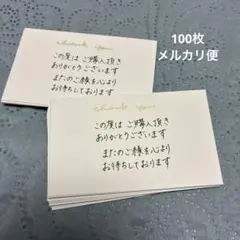 100枚
メルカリ便
thank you
この度は ご購入頂き
ありがとうございます
またのご縁を心より
お待ちしております
thank you
この度は ご購入頂き
ありがとうございます
またのご縁を心より
お待ちしております